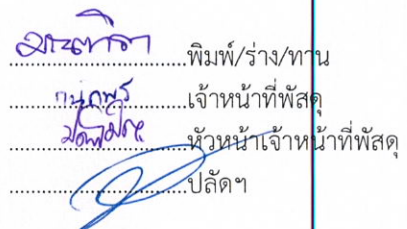 ......................พิมพ์/ร่าง/ทาน
......................เจ้าหน้าที่พัสดุ
......................หัวหน้าเจ้าหน้าที่พัสดุ
......................ปลัดฯ